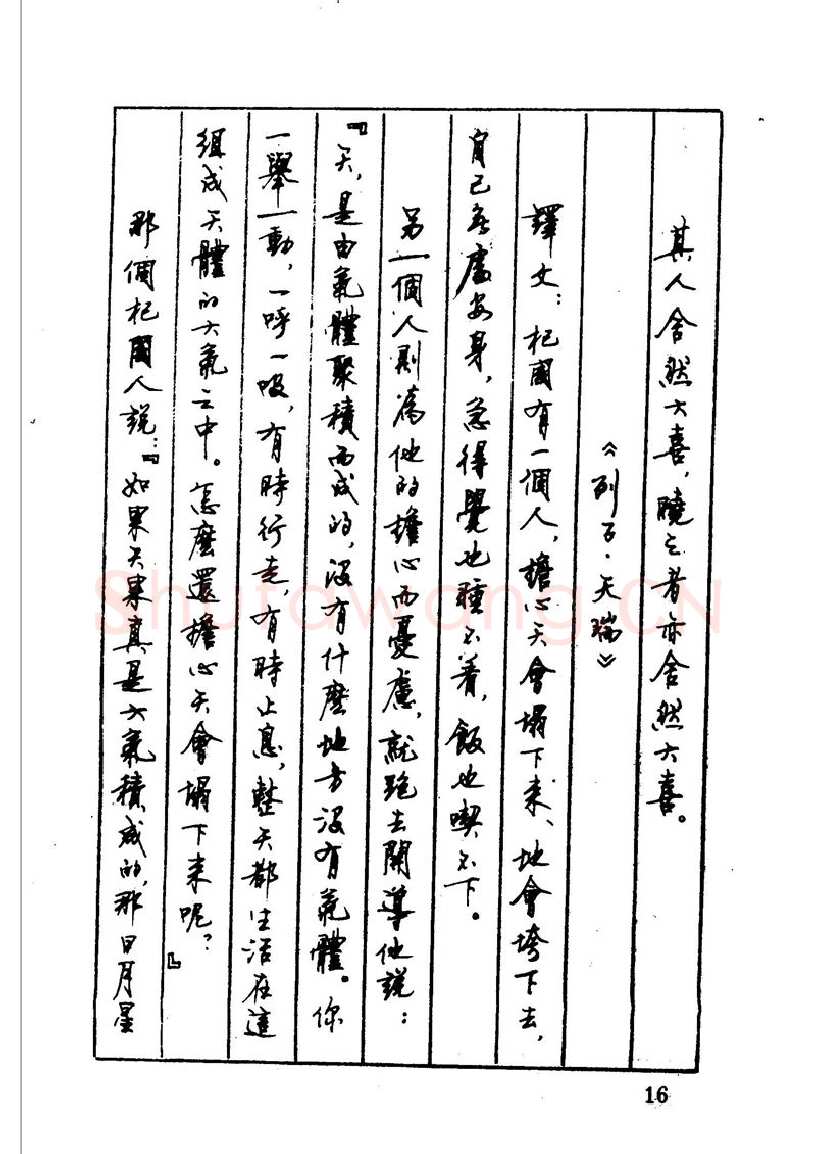 其人舍然大喜，曉之者亦舍然大喜。
《列子·天瑞》
譯文：杞國有一個人，擔心天會塌下来、地會垮下去，
自己無處安身，急得覺也睡不着，飯也喫不下。
另一個人則爲他的擔心而憂慮，就跑去開導他説：
『天，是由氣體聚積而成的，没有什麽地方没有氣體。你
一舉一動，一呼一吸，有時行走，有時止息，整天都生活在這
組成天體的大氣之中。怎麽還擔心天會塌下来呢？』
那個杞國人説：『如果天果真是大氣積成的，那日月星
16
Shufawang.CN